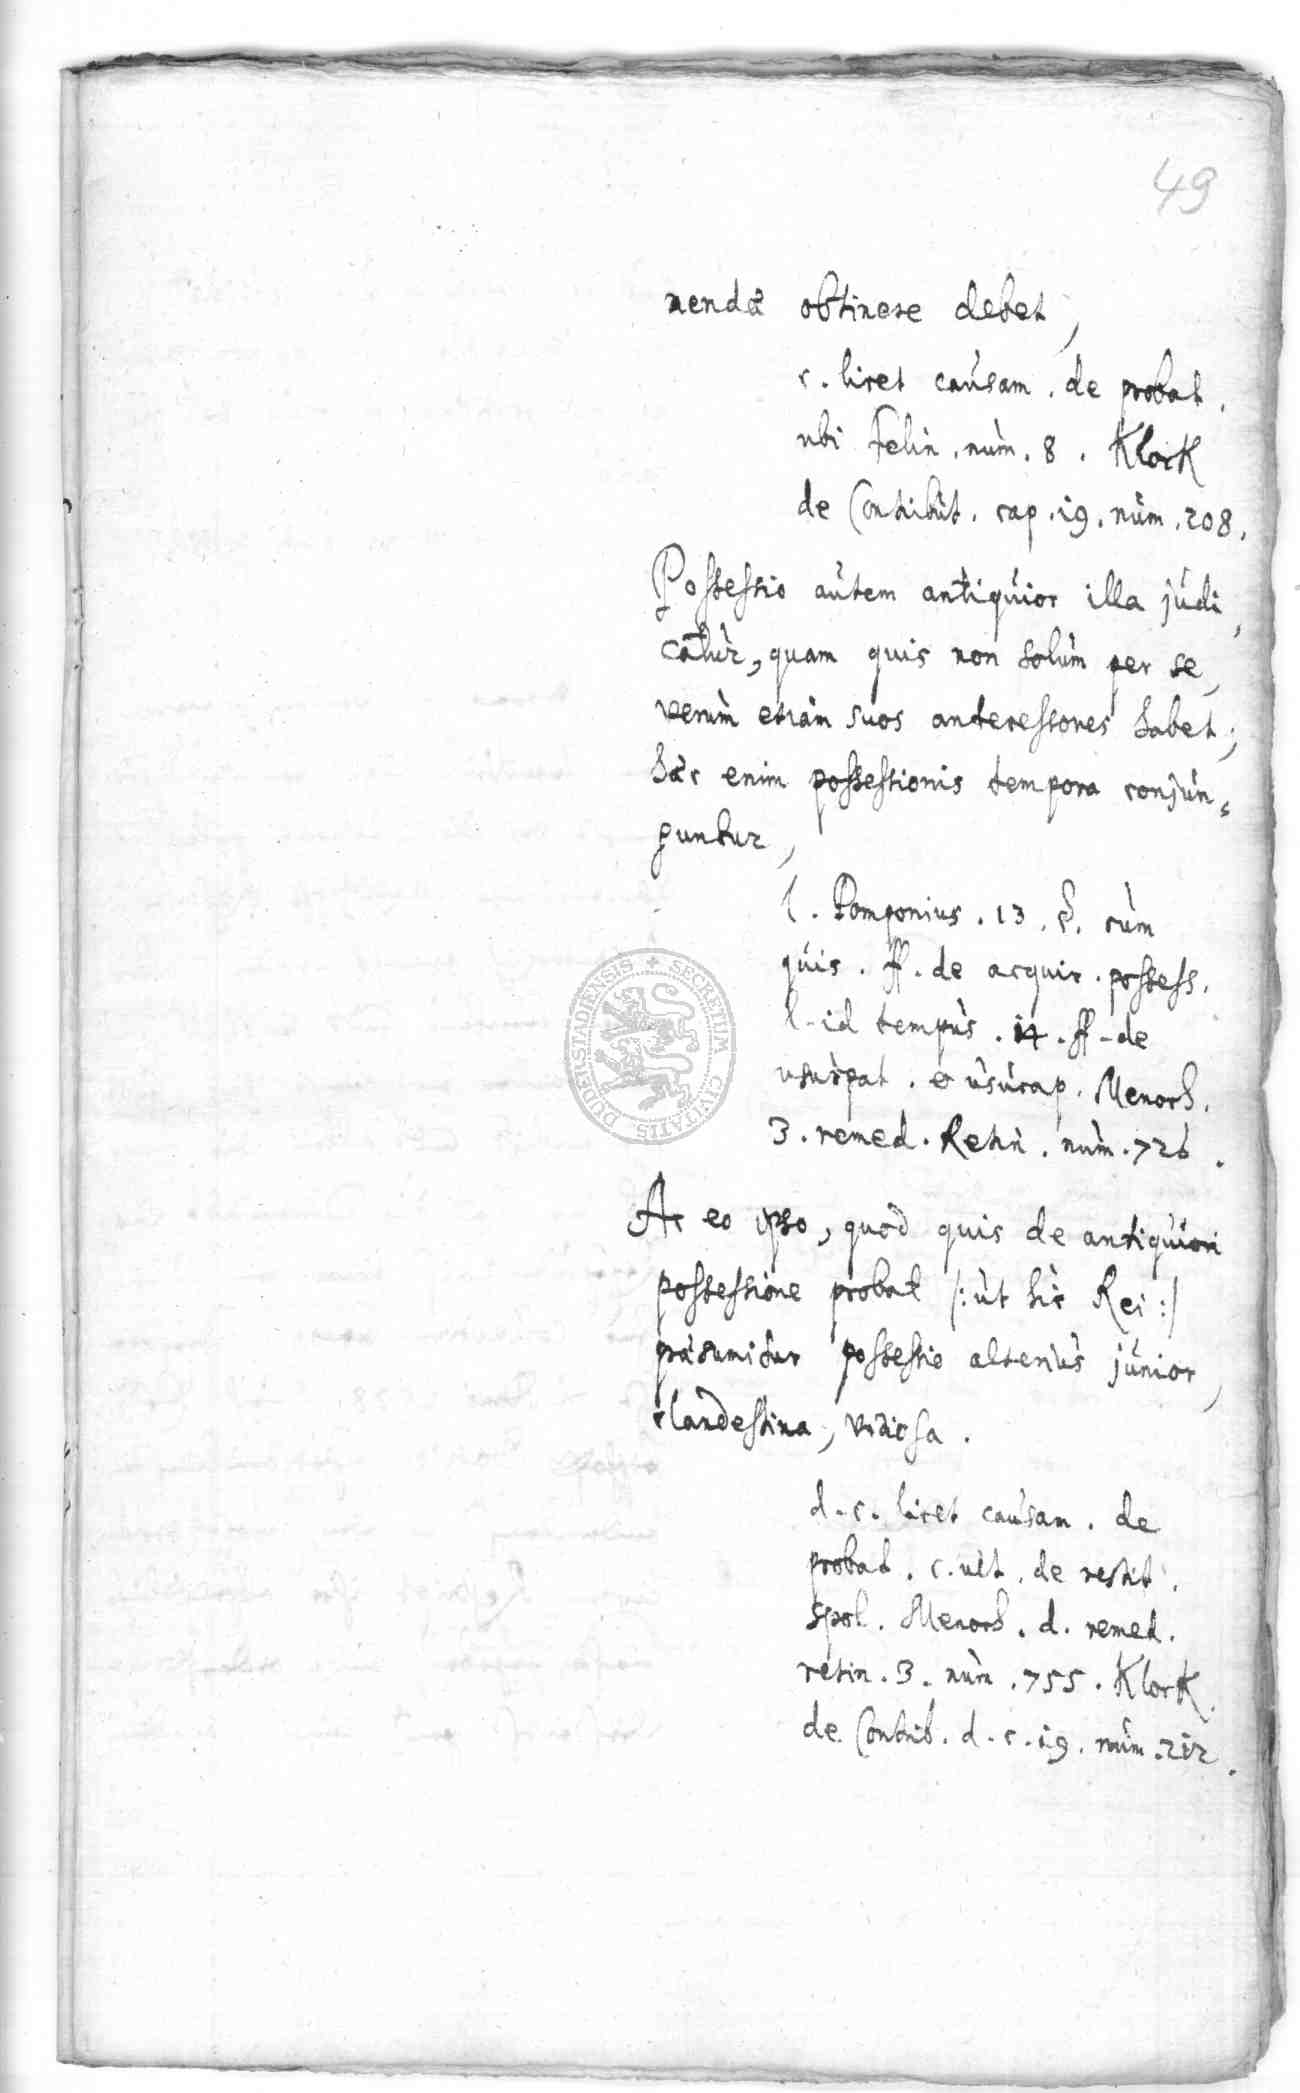 49
nendâ obtinere debet,
c. licet causam. de probat.
ubi Felin. num. 8. Klock
de Contribut. cap. 19. num. 208.
Possessio autem antiquior illa judi,
catur, quam quis non solum per se,
verum etiam suos antecessores habet;
hæc enim possessionis tempora conjun,
guntur,
l. Pomponius. 13. §. cum
quis. ff. de acquir. possess.
l. id tempus. 14. ff. de
usurpat. et usucap. Menoch.
3. remed. Retin. num. 726.
Ac eo ipso, quod quis de antiquiori
possessione probat /: ut hic Rei :/
præsumitur possessio alterius junior,
clandestina, vitiosa.
d. c. licet causam. de
probat. c. ult. de restit.
spol. Menoch. d. remed.
retin. 3. num. 755. Klock.
de Contrib. d. c. 19. num. 212.
SECRETUM CIVITATIS DUDERSTADIENSIS